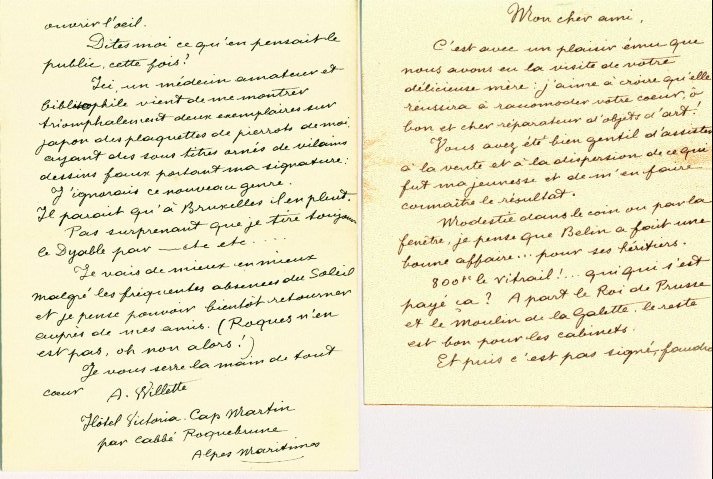 Mon cher ami,
C'est avec un plaisir ému que
nous avons eu la visite de votre
délicieuse mère : j'aime à croire qu'elle
réussira à racomoder votre coeur, ô
bon et cher réparateur d'objets d'art !
Vous avez été bien gentil d'assister
à la vente et à la dispersion de ce qui
fut ma jeunesse et de m'en faire
connaître le résultat.
Modestie dans le coin ou par la
fenêtre, je pense que Belin a fait une
bonne affaire... pour ses héritiers.
800 le vitrail !... qui qui s'est
payé ça ? A part le Roi de Prusse
et le Moulin de la Galette, le reste
est bon pour les cabinets.
Et puis c'est pas signé, faudra
ouvrir l'oeil.
Dites moi ce qu'en pensait le
public, cette fois ?
Ici, un médecin amateur et
bibliophile vient de me montrer
triomphalement deux exemplaires sur
japon des plaquettes de pierrots de moi,
ayant des sous titres ornés de vilains
dessins faux portant ma signature :
J'ignorais ce nouveau genre.
Il parait qu'à Bruxelles il en pleut.
Pas surprenant que je tire toujours
le Dyable par — etc etc....
Je vais de mieux en mieux
malgré les fréquentes absences du Soleil
et je pense pouvoir bientôt retourner
auprès de mes amis. (Roques n'en
est pas, oh non alors !)
Je vous serre la main de tout
coeur A. Willette
Hôtel Victoria. Cap Martin
par Cabbé Roquebrune
Alpes Maritimes